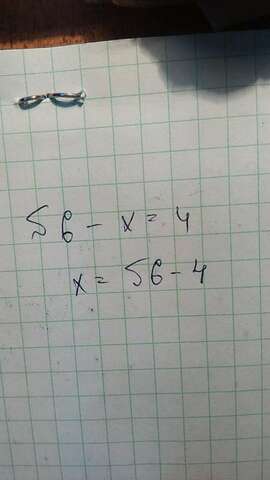 56 - x = 4
x = 56 - 4